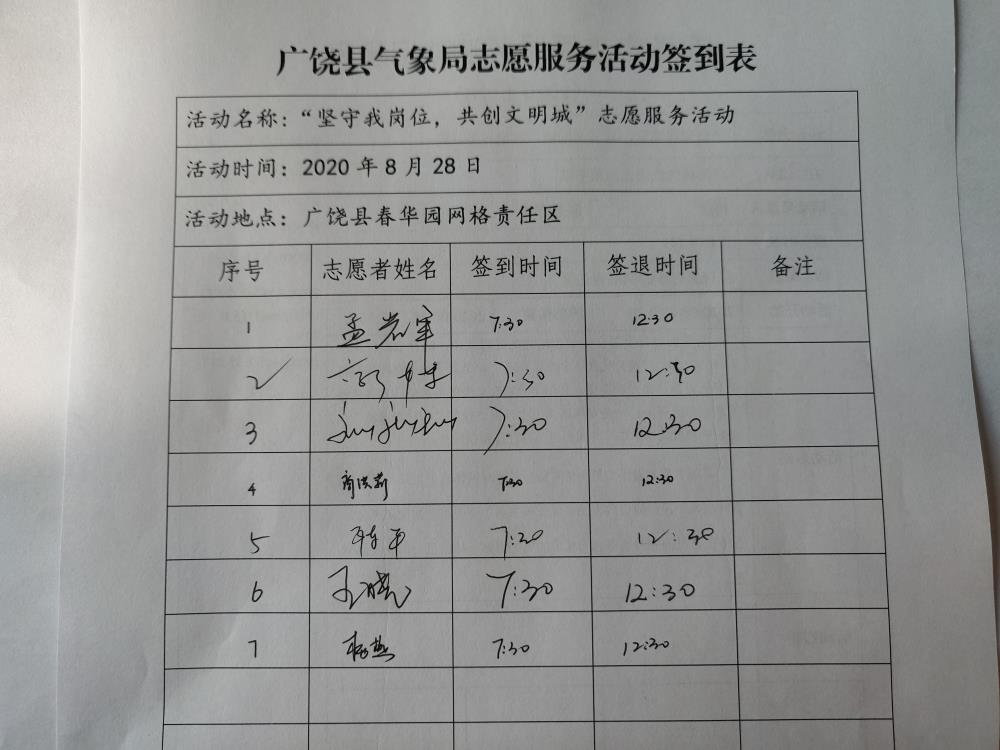 广饶县气象局志愿服务活动签到表
活动名称：“坚守我岗位，共创文明城”志愿服务活动
活动时间：2020 年 8 月 28 日
活动地点：广饶县春华园网格责任区
序号 志愿者姓名 签到时间 签退时间 备注
1 孟岩军 7:30 12:30
2 7:30 12:30
3 7:30 12:30
4 商洪莉 7:30 12:30
5 7:30 12:30
6 王晓 7:30 12:30
7 杨燕 7:30 12:30